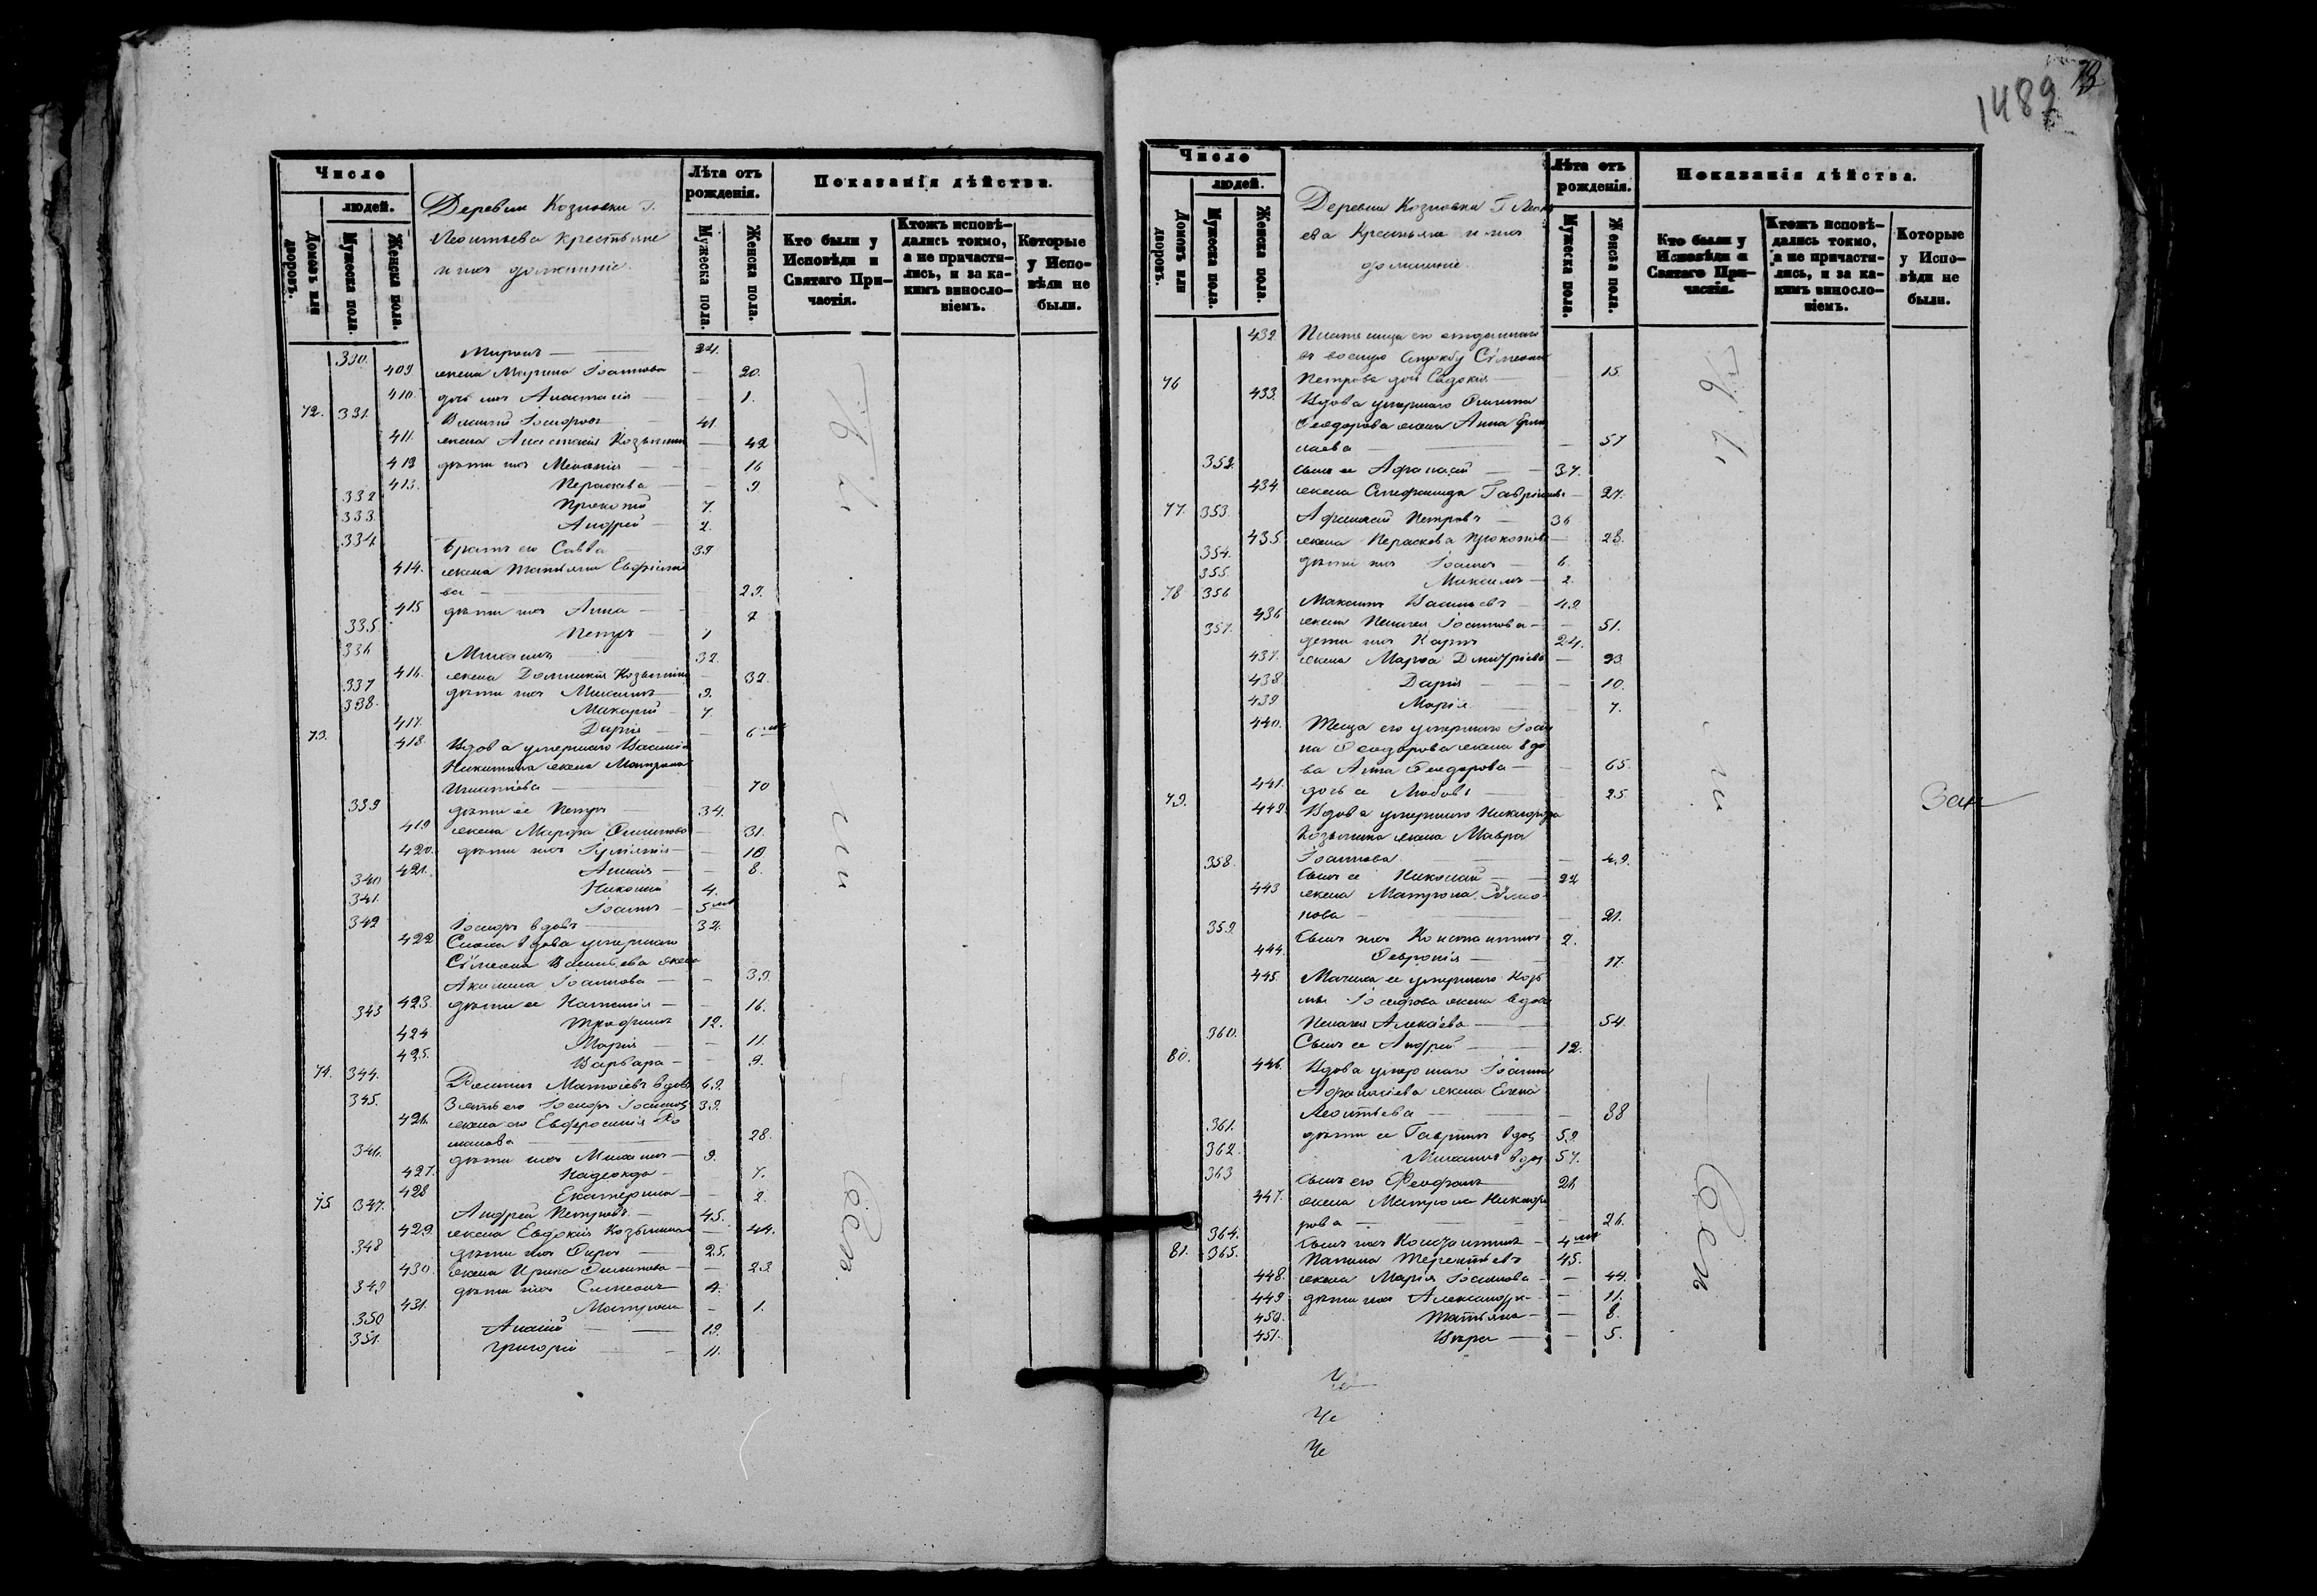 Число
людей.
Домовъ или дворовъ.
Мужеска пола.
Женска пола.
Деревни Козловки Г.
Леонтьева крестьяне
и ихъ домашніе.
Лѣта отъ рожденія.
Мужеска пола.
Женска пола.
Показанія дѣйства.
Кто были у Исповѣди и Святаго Причастія.
Ктожъ исповѣдались токмо, а не причастились, и за какимъ винословіемъ.
Которые у Исповѣди не были.
330. Миронъ — 24.
409 жена Марина Іоаннова — 20.
410. дочь ихъ Анастасія — 1.
72. 331. Василій Іосифовъ 41.
411. жена Анастасія Козьмина — 42
412 дѣти ихъ Меланія — 16
413. Параскева — 9
332 Прокопій 7.
333. Андрей — 2.
334 братъ его Савва 39.
414. жена Татьяна
ва — 29.
415 дѣти ихъ Анна — 7
335. Петръ — 1
336 Михаилъ 32.
416. жена Домникія Козьмина 32.
337 дѣти ихъ Михаилъ 9.
338. Макарій — 7.
417. Дарія — 6
73. 418. Вдова умершаго Василія
Никитина жена Матрона
Игнатіева — 70
339 дѣти ее Петръ — 34.
419 жена Марфа Филипова — 31.
420. дѣти ихъ Іуліанія — 10
421. Анна — 8.
340 Николай 4.
341. Іоаннъ — 5
342 Іосифъ вдовъ 32.
422 Сноха вдова умершаго
Сѵмеона Васильева жена
Акилина Іоаннова — 39.
423. дѣти ее Наталія — 16.
343 Трофимъ 12.
424 Марія — 11.
425. Варвара — 9.
74. 344. Матѳіевъ вдовъ 69.
345. Зять его Іосифъ Іоанновъ 39.
426. жена его Евфросинія Ро
манова — 28.
346. дѣти ихъ Михаилъ — 9.
427. Надежда — 7.
428 Екатерина — 2.
75. 347. Андрей Петровъ — 45.
429. жена Евдокія Козьмина — 44.
348 дѣти ихъ 25.
430. жена Ирина Филипова — 23
349 дѣти ихъ Симеонъ 4.
431. Матрона — 1.
350 19.
351. Григорій — 11.
1489
Число
людей.
Домовъ или дворовъ.
Мужеска пола.
Женска пола.
Деревни Козловки Г. Леонть
ева Крестьяне и ихъ
домашніе.
Лѣта отъ рожденія.
Мужеска пола.
Женска пола.
Показанія дѣйства.
Кто были у Исповѣди и Святаго Причастія.
Ктожъ исповѣдались токмо, а не причастились, и за какимъ винословіемъ.
Которые у Исповѣди не были.
432. Племяница его отданнаго
въ военую службу Сѵмеона
Петрова дочь Евдокія — 15.
76 433. Вдова умершаго Филипа
Ѳеодорова жена Анна
лаева — 57
352. Сынъ ее Афанасій — 37.
434 жена Стефанида Гавріилова — 27.
77. 353. Афанасій Петровъ — 36
435 жена Параскева Прокопіева — 28.
354. дѣти ихъ Іоаннъ — 6.
355. Максимъ — 2.
78 356 Максимъ Васильевъ 49.
436 жена Пелагея Іоаннова — 51.
357. дети ихъ Карпъ 24.
437. жена Марѳа Дмитріева — 23.
438 Дарія — 10.
439 Марія 7.
440. Теща его умершаго Іоан
на Ѳеодорова жена вдо
ва Анна Ѳеодорова — 65.
441. дочь ее Любовь — 25.
79. 442 Вдова умершаго Никифора
Козьмина жена Мавра
Іоаннова — 49.
358. Сынъ ее Николай — 22
443 жена Матрона Сѵмео
нова — 21.
359. Сынъ ихъ Константинъ 2.
444. Феврон​ія — 17.
445. Мачиха ее умершаго Козь
мы Іосифова жена вдова
Пелагея Алексѣева — 54.
360. Сынъ ее Андрей — 12.
80. 446. Вдова умершаго Іоанна
Афанасіева жена Елена
Леонтьева — 88
361. дѣти ее Гавріилъ вдов 59.
362. Михаилъ вдов 57.
363 Сынъ его Феофанъ 26
447. жена Матрона Никифо
рова — 26.
364. Сынъ ихъ Константинъ — 4
81. 365. Терентьевъ 45.
448. жена Марія Іоаннова — 44.
449 дѣти ихъ Александра — 11.
450. Татьяна — 8.
451. Вѣра — 5.